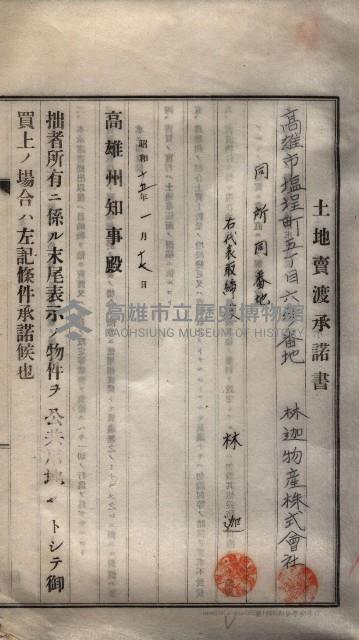 土地賣渡承諾書
高雄市塩埕町五丁目六 番地
林迦物産株式會社
同所同番地
右代表取締役 林迦
昭和十五年一月十七日
高雄州知事殿
拙者所有ニ係ル末尾表示ノ物件ヲ公共用地トシテ御
買上ノ場合ハ左記條件承諾候也
高雄市立歷史博物館
KAOHSIUNG MUSEUM OF HISTORY